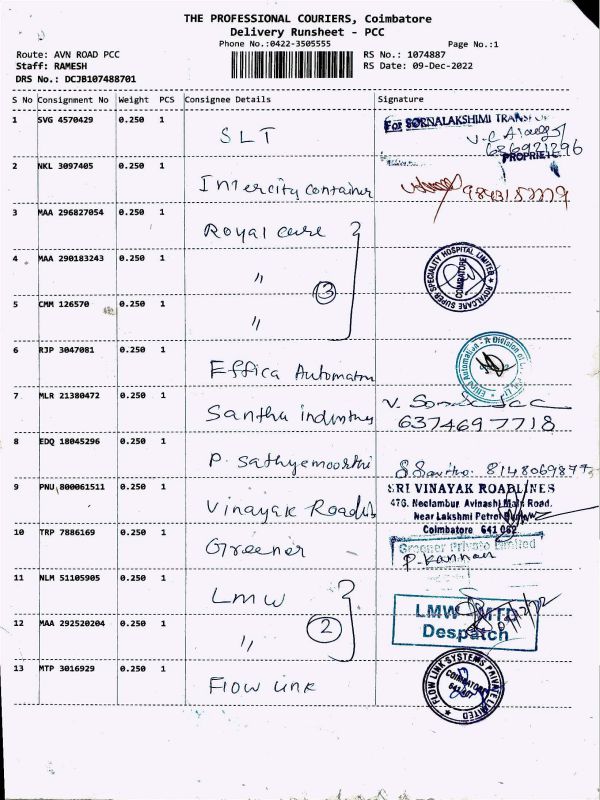 THE PROFESSIONAL COURIERS, Coimbatore
Delivery Runsheet - PCC
Phone No.:0422-3505555
Page No.:1
Route: AVN ROAD PCC
RS No.: 1074887
Staff: RAMESH
RS Date: 09-Dec-2022
DRS No.: DCJB107488701
S No Consignment No Weight PCS Consignee Details Signature
1 SVG 4570429 0.250 1 SLT For SORNALAKSHIMI
PROPRIET
2 NKL 3097405 0.250 1 Intercity container
3 MAA 296827054 0.250 1 Royal care
4 MAA 290183243 0.250 1 〃 3 ROYALCARE SUPER SPECIALITY HOSPITAL LIMITED COIMBATORE
5 CMM 126570 0.250 1 〃
6 RJP 3047081 0.250 1 Effica Automation Effica Automation - A Division of
7 MLR 21380472 0.250 1 Santha industries V.
6374697718
8 EDQ 18045296 0.250 1 P. Sathyemoorthi
9 PNU 800061511 0.250 1 Vinayak Roadlines SRI VINAYAK ROADLINES
476, Neelambur, Avinashi Main Road,
Near Lakshmi Petrol
Coimbatore 641 062
10 TRP 7886169 0.250 1 Greener Greener Private Limited
P. Kannan
11 NLM 51105905 0.250 1 LMW LMW - MTD
12 MAA 292520204 0.250 1 〃 2 Despatch
13 MTP 3016929 0.250 1 Flow Link FLOW LINK SYSTEMS PRIVATE LIMITED COIMBATORE